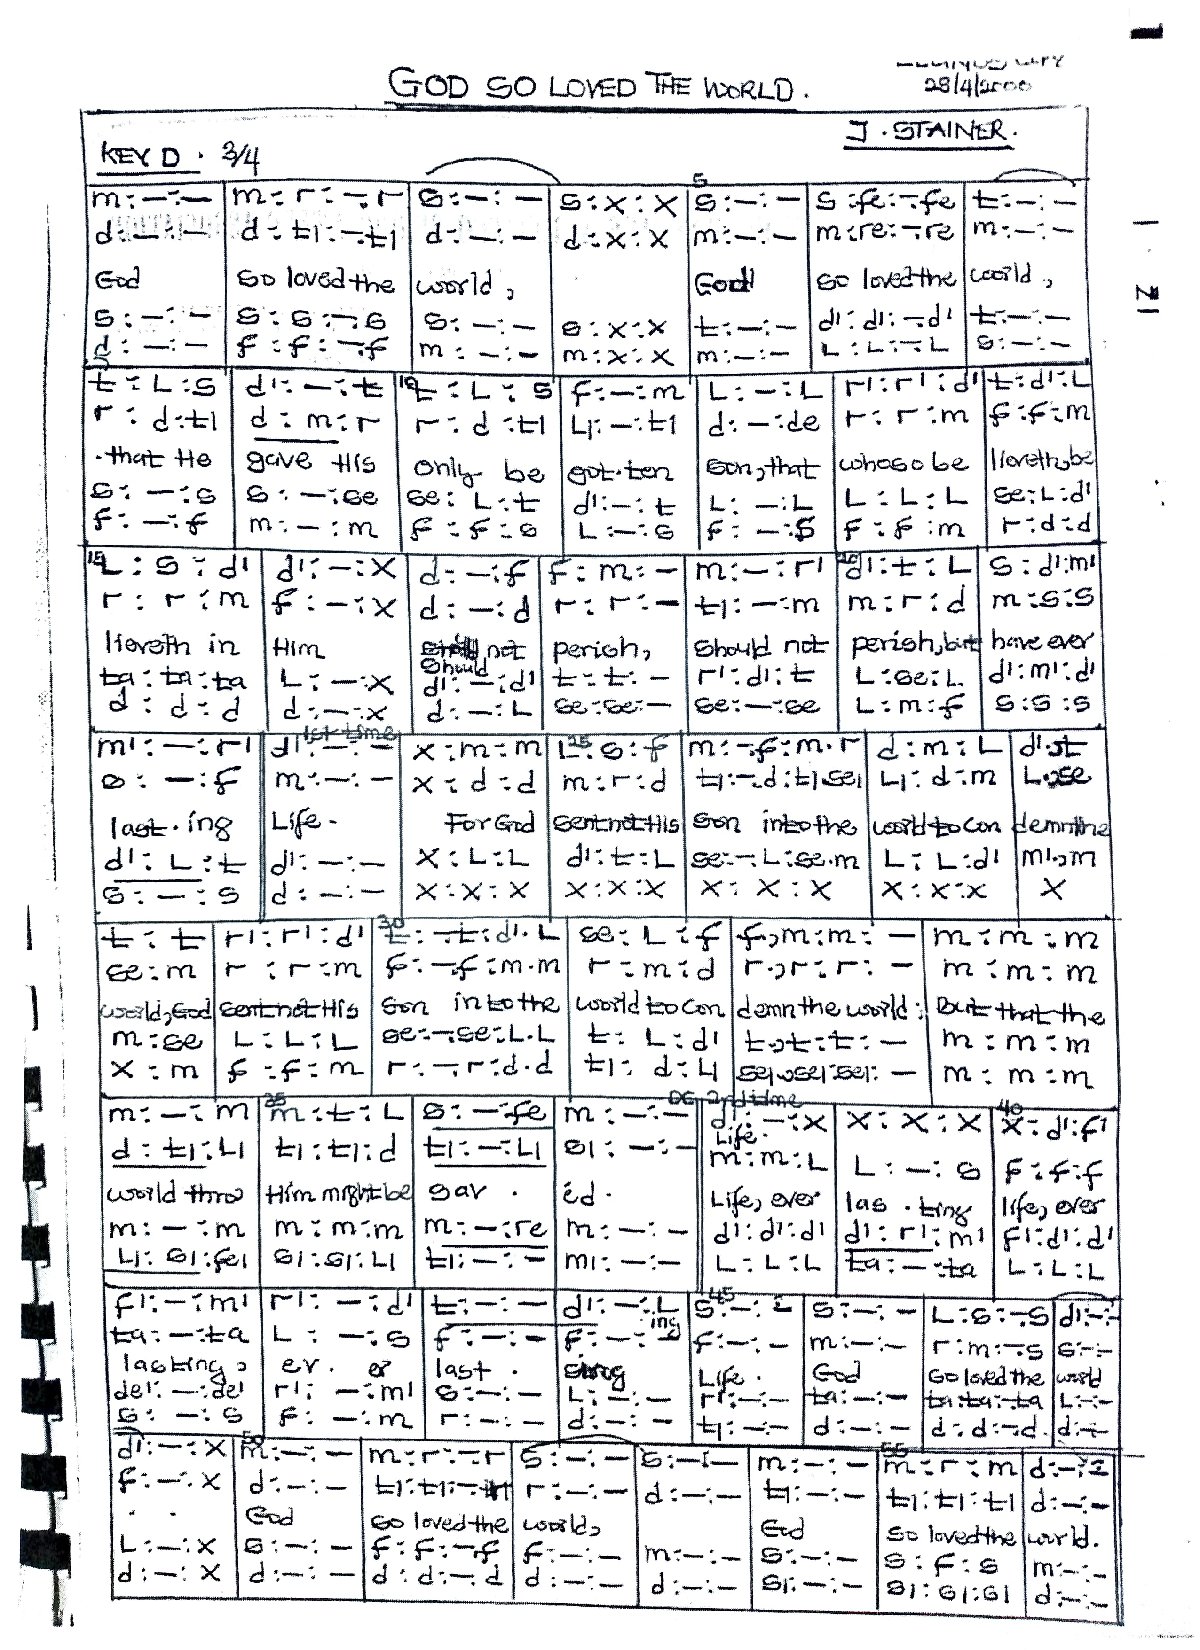 GOD SO LOVED THE WORLD.
28/4/2000
J. STAINER.
KEY D. 3/4
5
m:—:— | m:r:—:r | s:—:— | s:x:x | s:—:— | s:fe:—:fe | t:—:—
d:—:— | d:t1:—:t1 | d:—:— | d:x:x | m:—:— | m:re:—:re | m:—:—
God | so loved the | world, | | God | so loved the | world,
s:—:— | s:s:—:s | s:—:— | s:x:x | t:—:— | d':d':—:d' | t:—:—
d:—:— | f:f:—:f | m:—:— | m:x:x | m:—:— | L:L:—:L | s:—:—
10
t:L:s | d':—:t | t:L:s | f:—:m | L:—:L | r':r':d' | t:d':L
r:d:t1 | d:m:r | r:d:t1 | L1:—:t1 | d:—:de | r:r:m | f:f:m
that He | gave His | only be | got.ten | son, that | whoso be | lieveth, be
s:—:s | s:—:se | se:L:t | d':—:t | L:—:L | L:L:L | se:L:d'
f:—:f | m:—:m | f:f:s | L:—:s | f:—:s | f:f:m | r:d:d
15 20
L:s:d' | d':—:x | d:—:f | f:m:— | m:—:r' | d':t:L | s:d':m'
r:r:m | f:—:x | d:—:d | r:r:— | t1:—:m | m:r:d | m:s:s
lieveth in | Him | should not | perish, | should not | perish, but | have ever
ta:ta:ta | L:—:x | d':—:d' | t:t:— | r':d':t | L:se:L | d':m':d'
d:d:d | d:—:x | d:—:L | se:se:— | se:—:se | L:m:f | s:s:s
1st time 25
m':—:r' | d':—:— | x:m:m | L:s:f | m:—.f:m.r | d:m:L | d'.,t
s:—:f | m:—:— | x:d:d | m:r:d | t1:—.d:t1.se1 | L1:d:m | L.,se
last.ing | Life. | For God | sent not His | son into the | world to con | demn the
d':L:t | d':—:— | x:L:L | d':t:L | se:—.L:se.m | L:L:d' | m'.,m
s:—:s | d:—:— | x:x:x | x:x:x | x:x:x | x:x:x | x
30
t:t | r':r':d' | t:—.t:d'.L | se:L:f | f.,m:m:— | m:m:m
se:m | r:r:m | f:—.f:m.m | r:m:d | r.,r:r:— | m:m:m
world, God | sent not His | son into the | world to con | demn the world: | But that the
m:se | L:L:L | se:—.se:L.L | t:L:d' | t.,t:t:— | m:m:m
x:m | f:f:m | r:—.r:d.d | t1:d:L1 | se1.,se1:se1:— | m:m:m
35 DC 2nd time 40
m:—:m | m:t:L | s:—:fe | m:—:— | d':—:x | x:x:x | x:d':f'
Life.
d:t1:L1 | t1:t1:d | t1:—:L1 | s1:—:— | m:m:L | L:—:s | f:f:f
world thro | Him might be | sav. | ed. | Life, ever | las.ting | life, ever
m:—:m | m:m:m | m:—:re | m:—:— | d':d':d' | d':r':m' | f':d':d'
L1:s1:fe1 | s1:s1:L1 | t1:—:— | m1:—:— | L:L:L | ta:—:ta | L:L:L
45
f':—:m' | r':—:d' | t:—:— | d':—:L | s:—:— | s:—:— | L:s:—:s | d':—:—
ing
ta:—:ta | L:—:s | f:—:— | f:—:— | f:—:— | m:—:— | r:m:—:s | s:—:—
lasting, | ev.er | last. | | Life. | God | so loved the | world
de':—:de' | r':—:m' | s:—:— | L:—:— | r':—:— | ta:—:— | ta:ta:—:ta | L:—:—
s:—:s | f:—:m | r:—:— | d:—:— | t1:—:— | d:—:— | d:d:—:d | d:—:—
50 55
d':—:x | m:—:— | m:r:—:r | s:—:— | s:—:— | m:—:— | m:r:m | d:—:—
f:—:x | d:—:— | t1:t1:—:t1 | r:—:— | d:—:— | t1:—:— | t1:t1:t1 | d:—:—
God | so loved the | world, | | God | so loved the | world.
L:—:x | s:—:— | f:f:—:f | f:—:— | m:—:— | s:—:— | s:f:s | m:—:—
d:—:x | d:—:— | d:d:—:d | d:—:— | d:—:— | s1:—:— | s1:s1:s1 | d:—:—